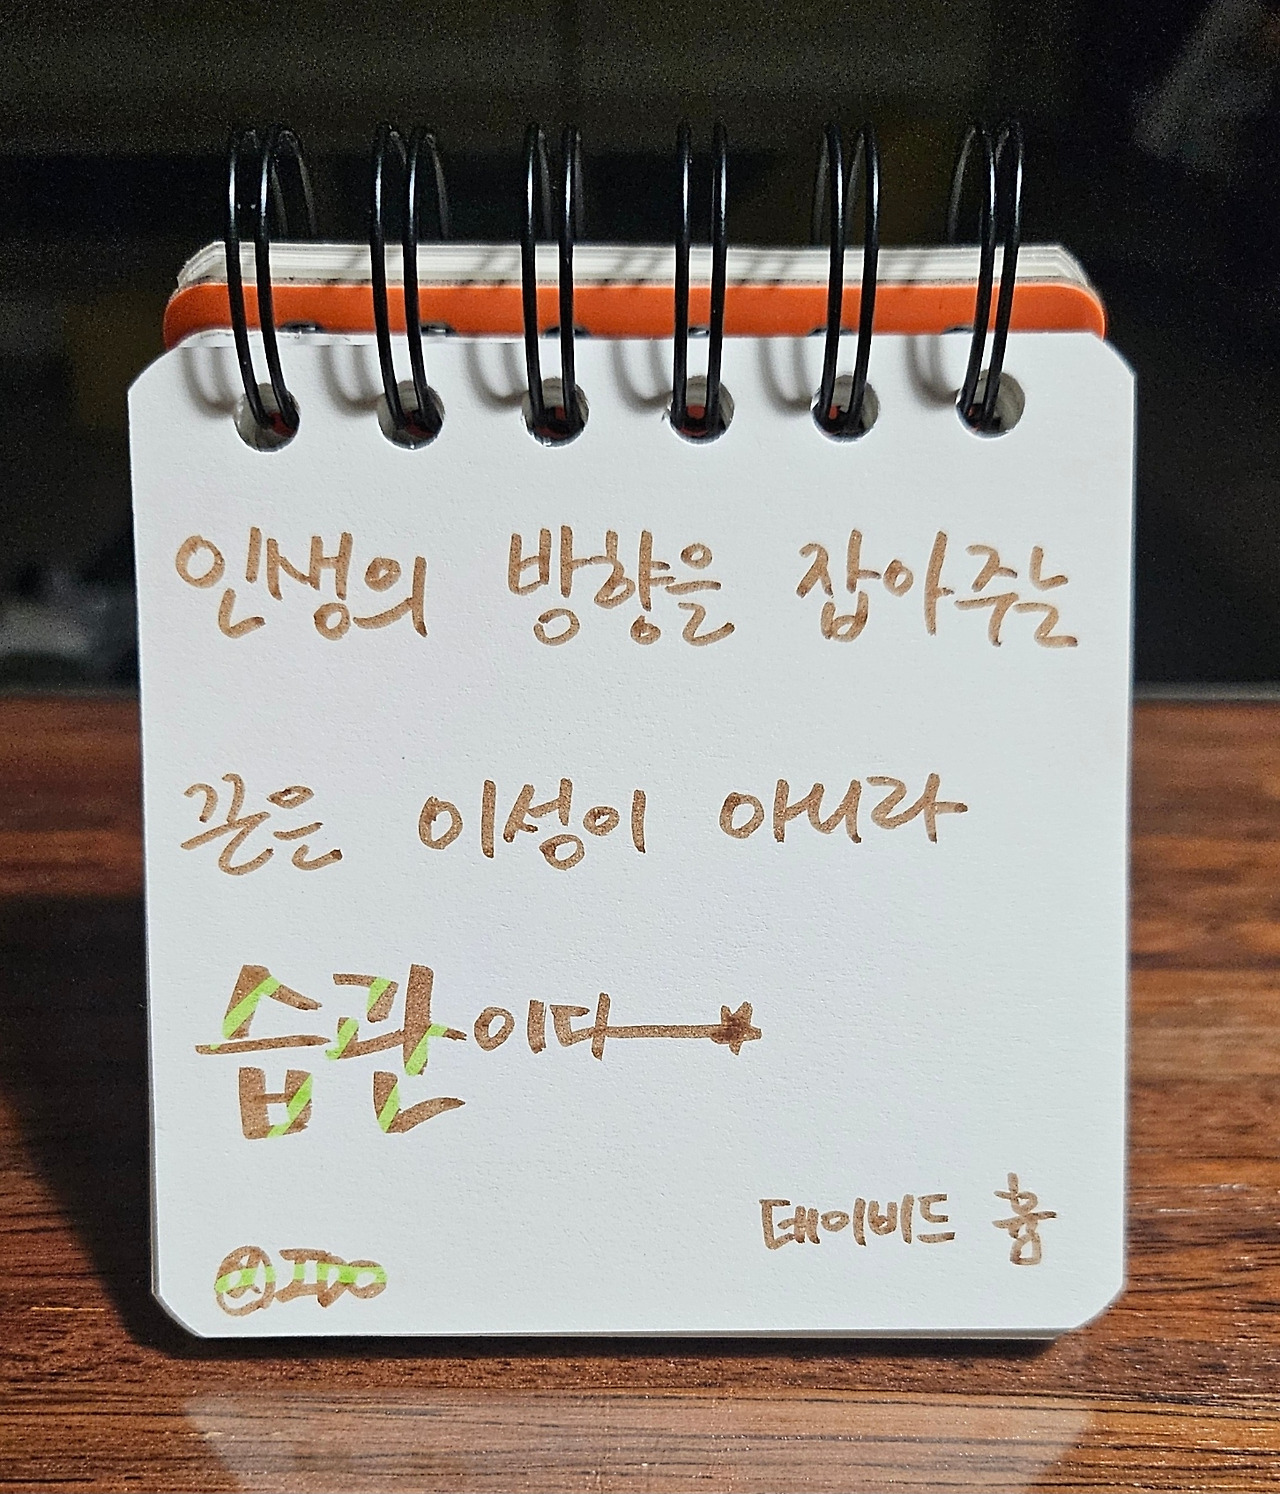 인생의 방향을 잡아주는
끈은 이성이 아니라
습관이다
데이비드 흄